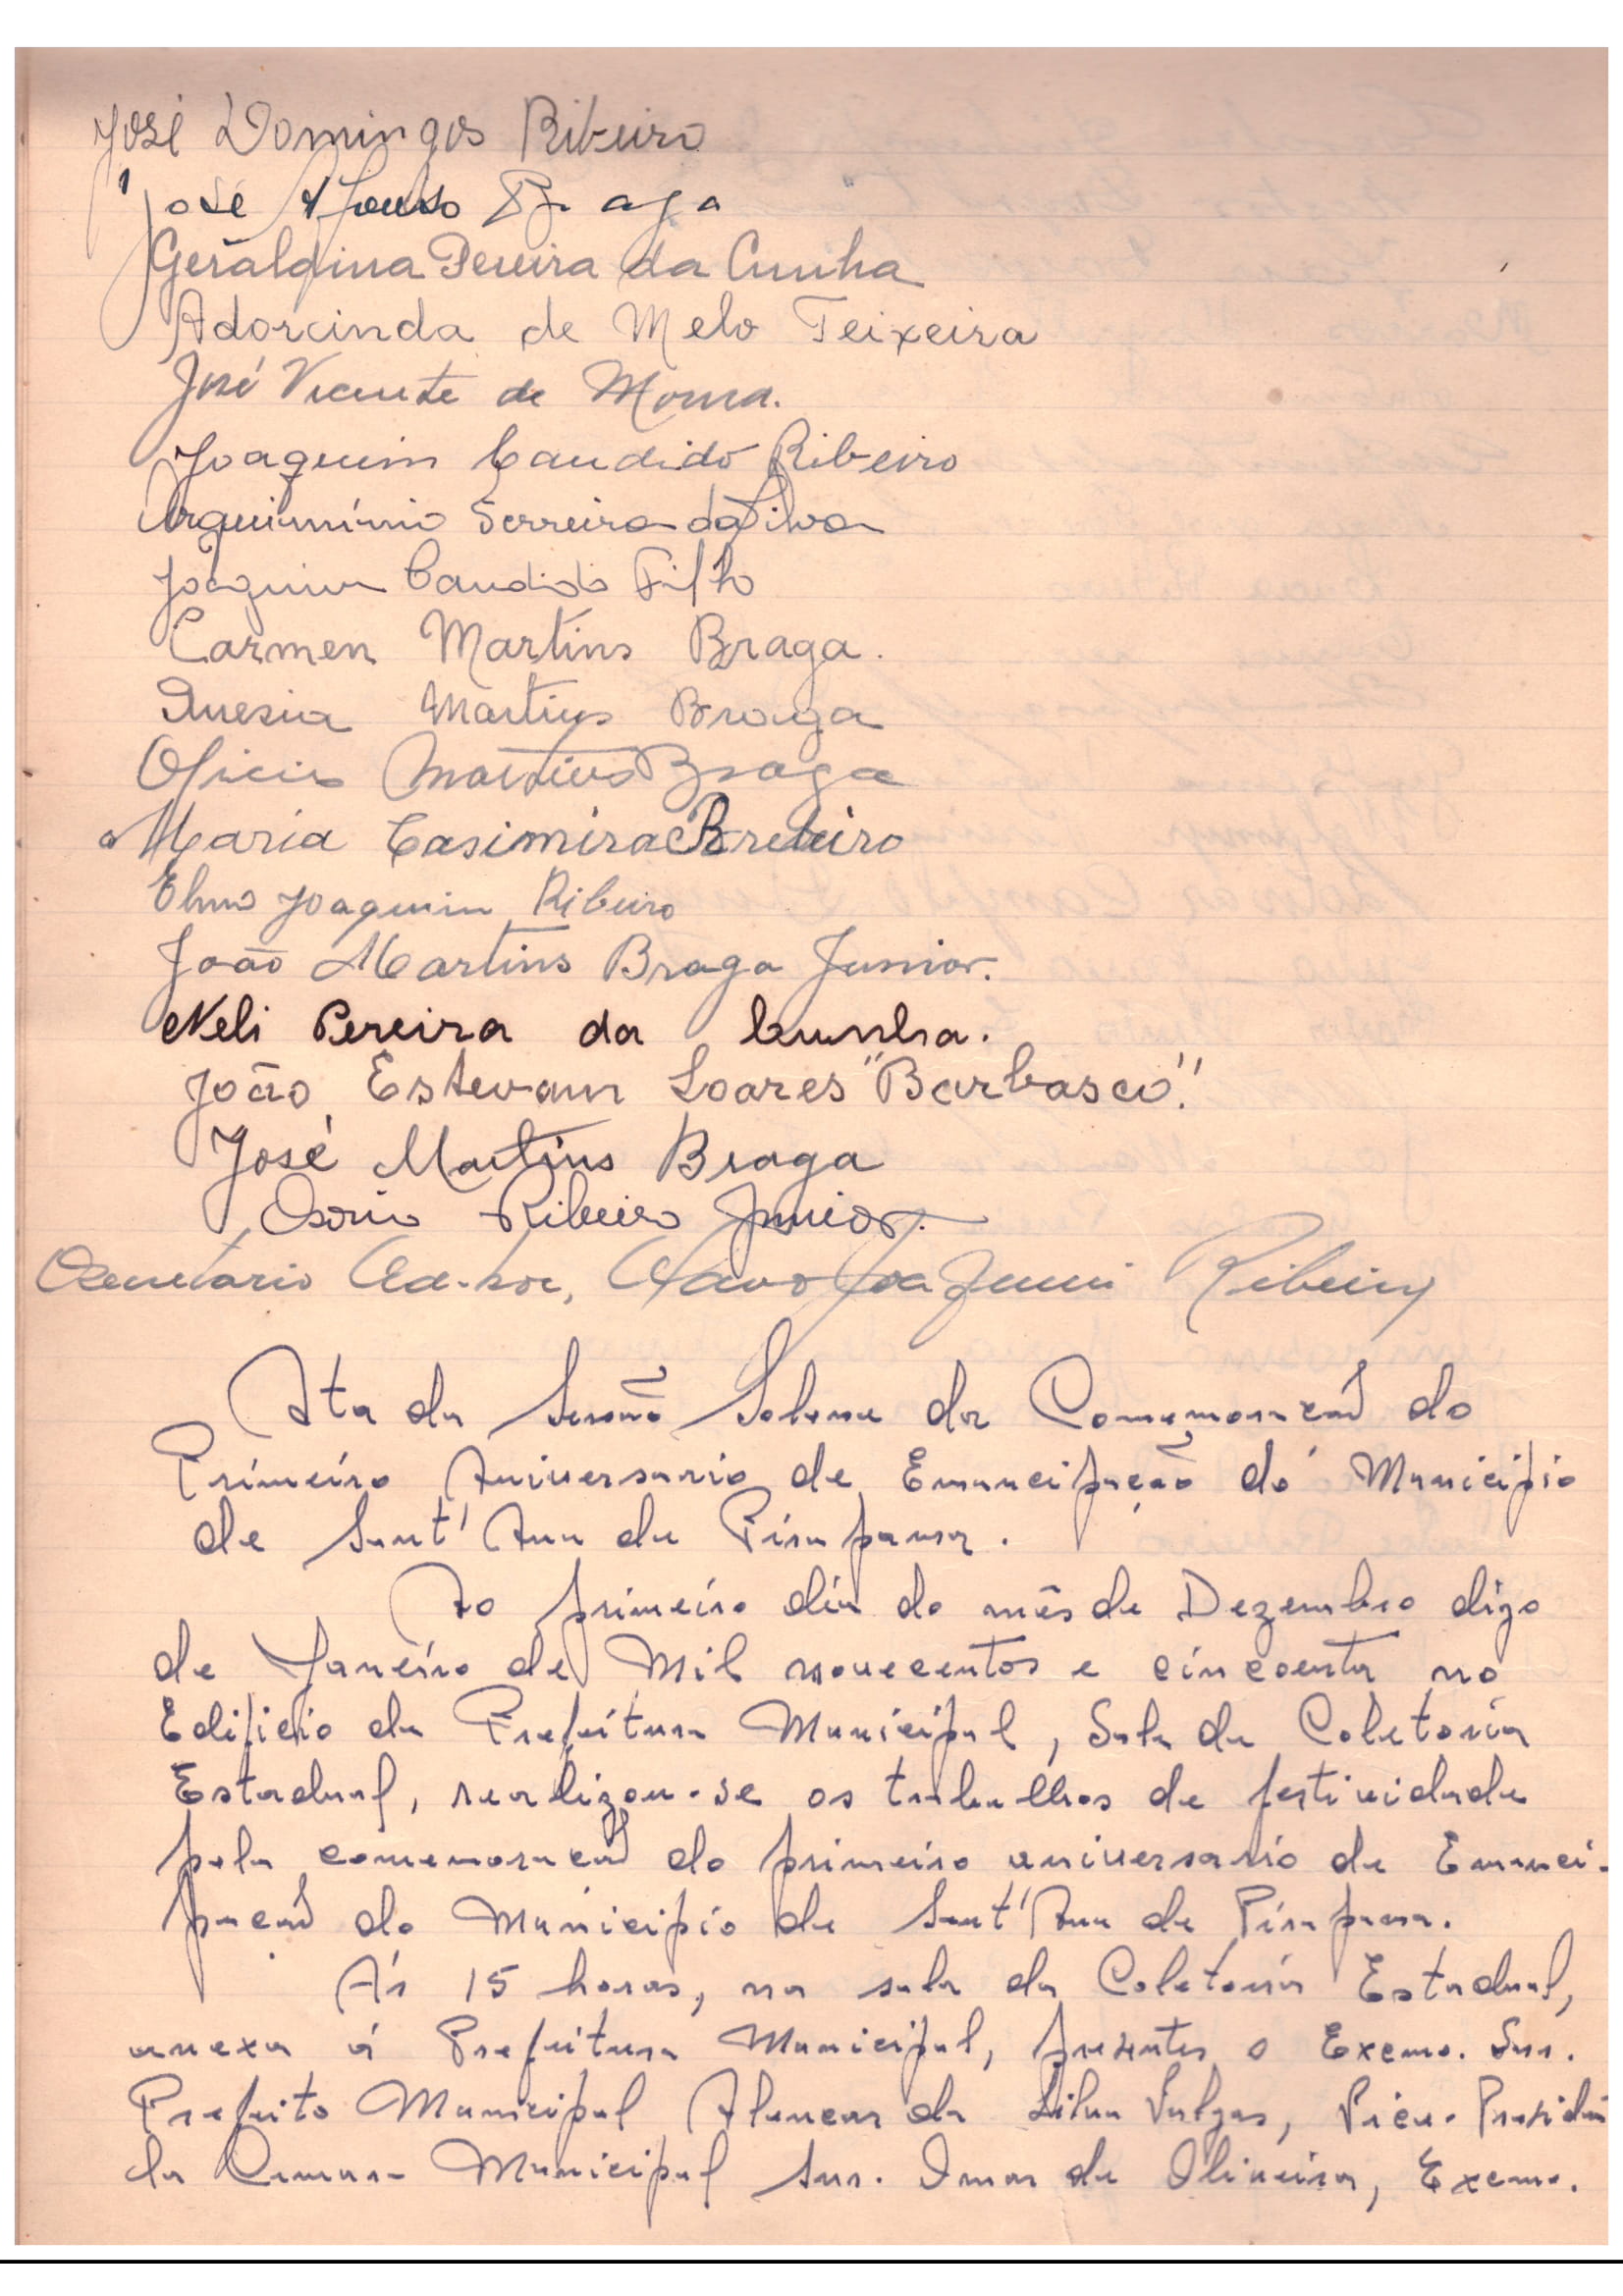 José Domingos Ribeiro
José Afonso Braga
Geraldina Pereira da Cunha
Adorcinda de Melo Teixeira
José Vicente de Moura.
Joaquim Candido Ribeiro
Arquiminio Ferreira da Silva
Joaquim Candido Filho
Carmen Martins Braga.
Inesia Martins Braga
Martins Braga
Maria Casimira Ribeiro
Elmo Joaquim Ribeiro
João Martins Braga Junior.
Neli Pereira da Cunha.
João Estevam Soares "Barbasco".
José Martins Braga
Osorio Ribeiro Junior.
Ribeiro
Ata da Sessão Solene da Comemoração do
Primeiro Aniversario de Emancipação do Municipio
de Sant'Ana de Pirapama.
Ao primeiro dia do mês de Dezembro digo
de Janeiro de Mil novecentos e cincoenta no
Edificio da Prefeitura Municipal, Sala da Coletoria
Estadual, realizou-se os trabalhos de festividade
pela comemoração do primeiro aniversario da Emanci-
pação do Municipio de Sant'Ana de Pirapama.
Ás 15 horas, na sala da Coletoria Estadual,
anexa á Prefeitura Municipal, presentes o Exemo. Snr.
Prefeito Municipal Alencar da Silva Vargas, Vice-Presiden
da Camara Municipal Snr. Imar de Oliveira, Exemo.